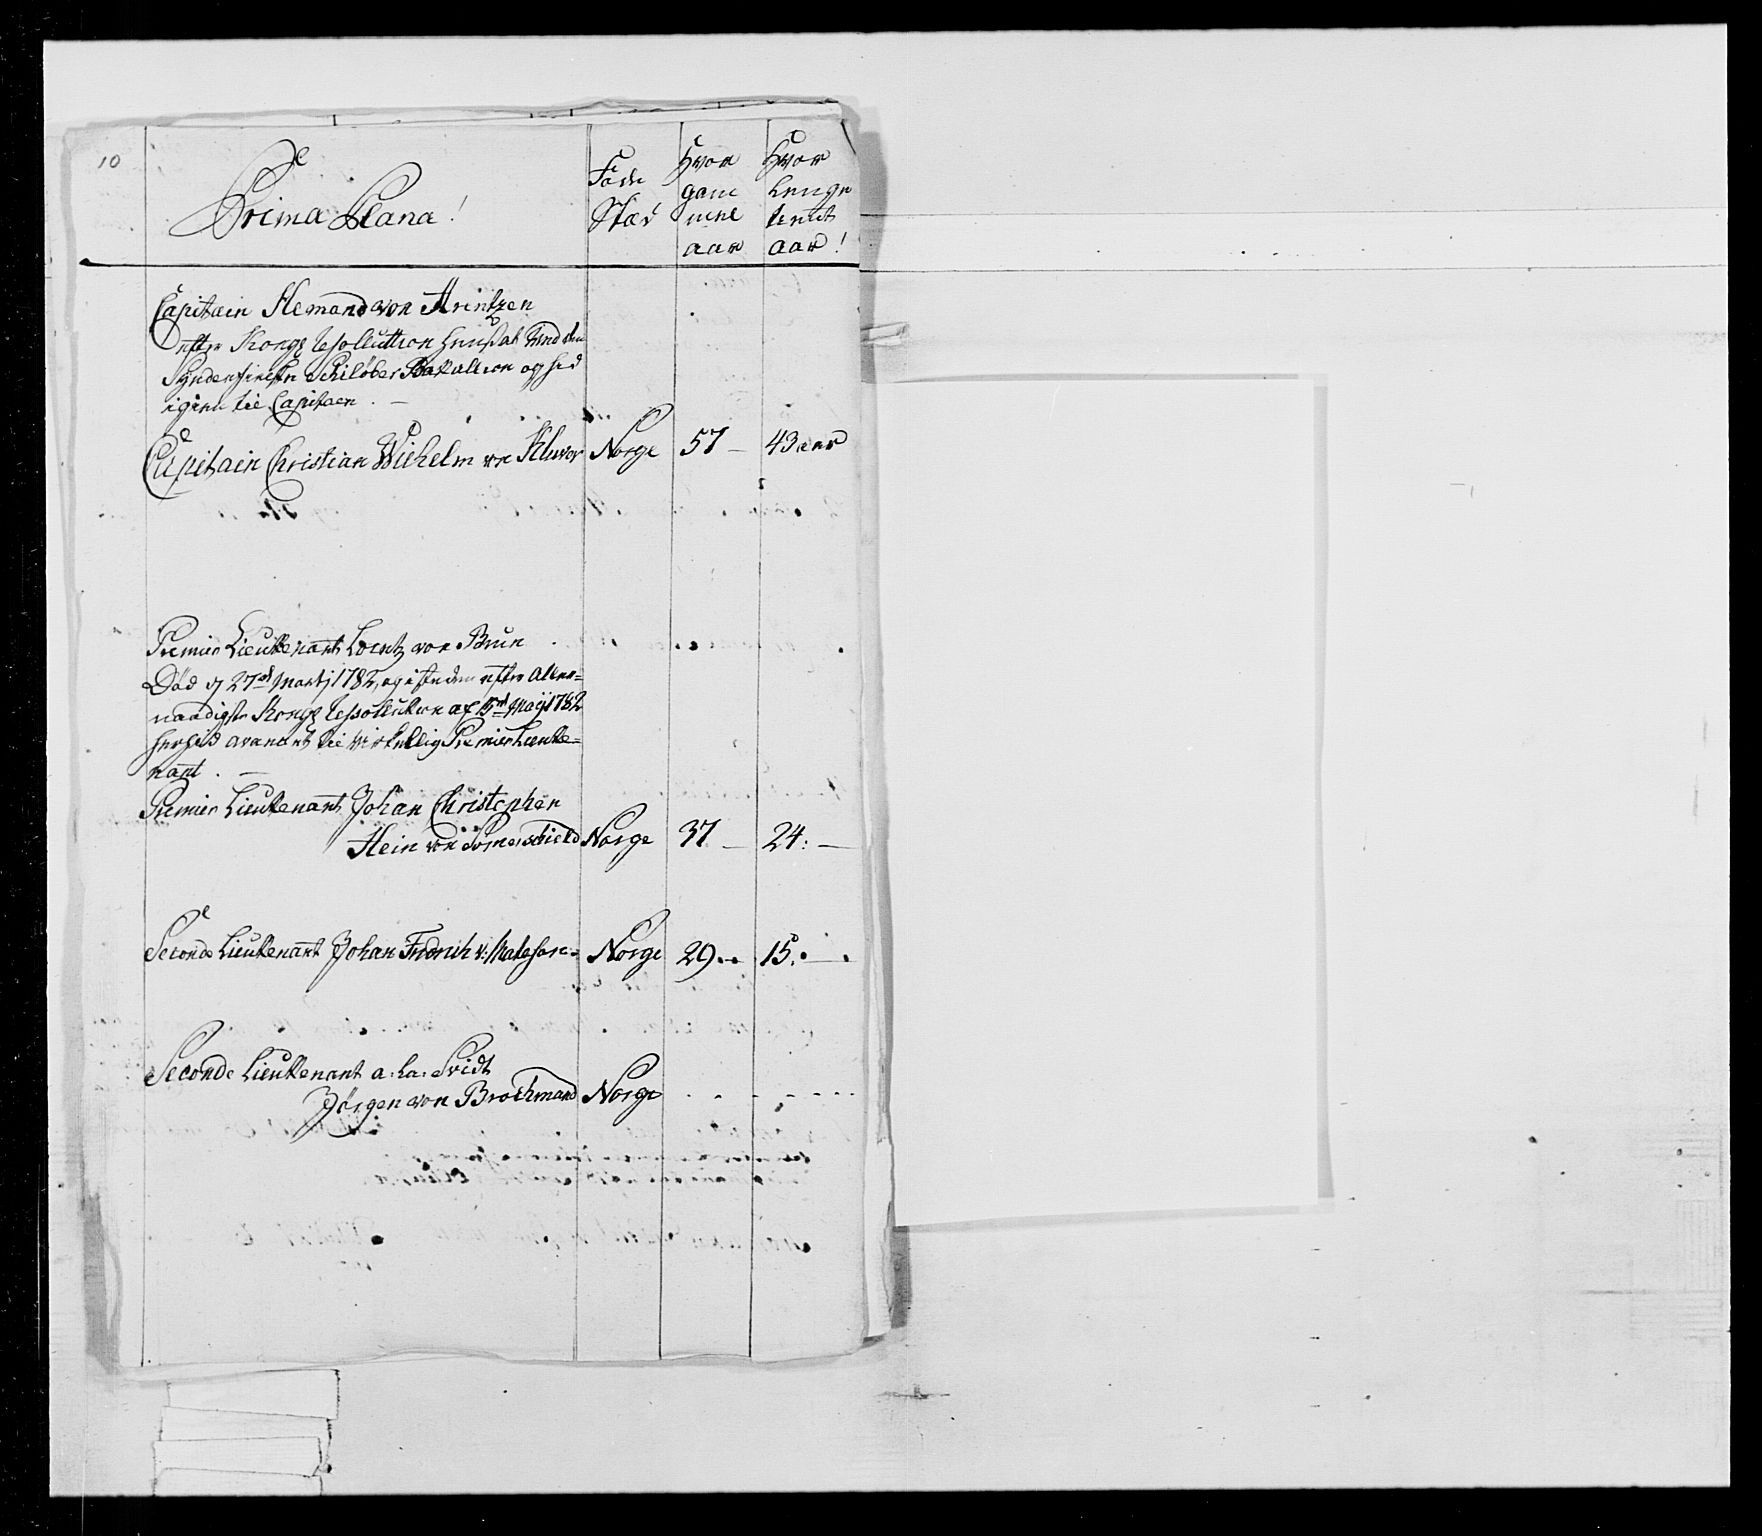 10
Prima Plana!
Føde
Stæd
Hvor
gam
mel
aar
Hvor
lenge
tient
aar!
Capitain Hemand von Arintzen
efter Kongl Resolluttion
Syndenfieldske Schiløber Batallion og hid
igien til Capitaen. —
Capitain Christian Wilhelm von Kluver Norge 57 — 43 aar
Premier Lieutenant Lorentz von Brun
Død d 27de Martj 1782, og isteden efter Aller=
naadigste Kongl Ressollution af 15de Maij 1782
herhid avanceret til Virkellig Premier Lieute=
nant. —
Premier Lieutenant Johan Christopher
Hein von Somerschield Norge 37 — 24: —
Seconde Lieutenant Johan Fredrich v: Matheson Norge 29 15.
Seconde Lieutenant a. la. Svidt
Jørgen von Brochmand Norge